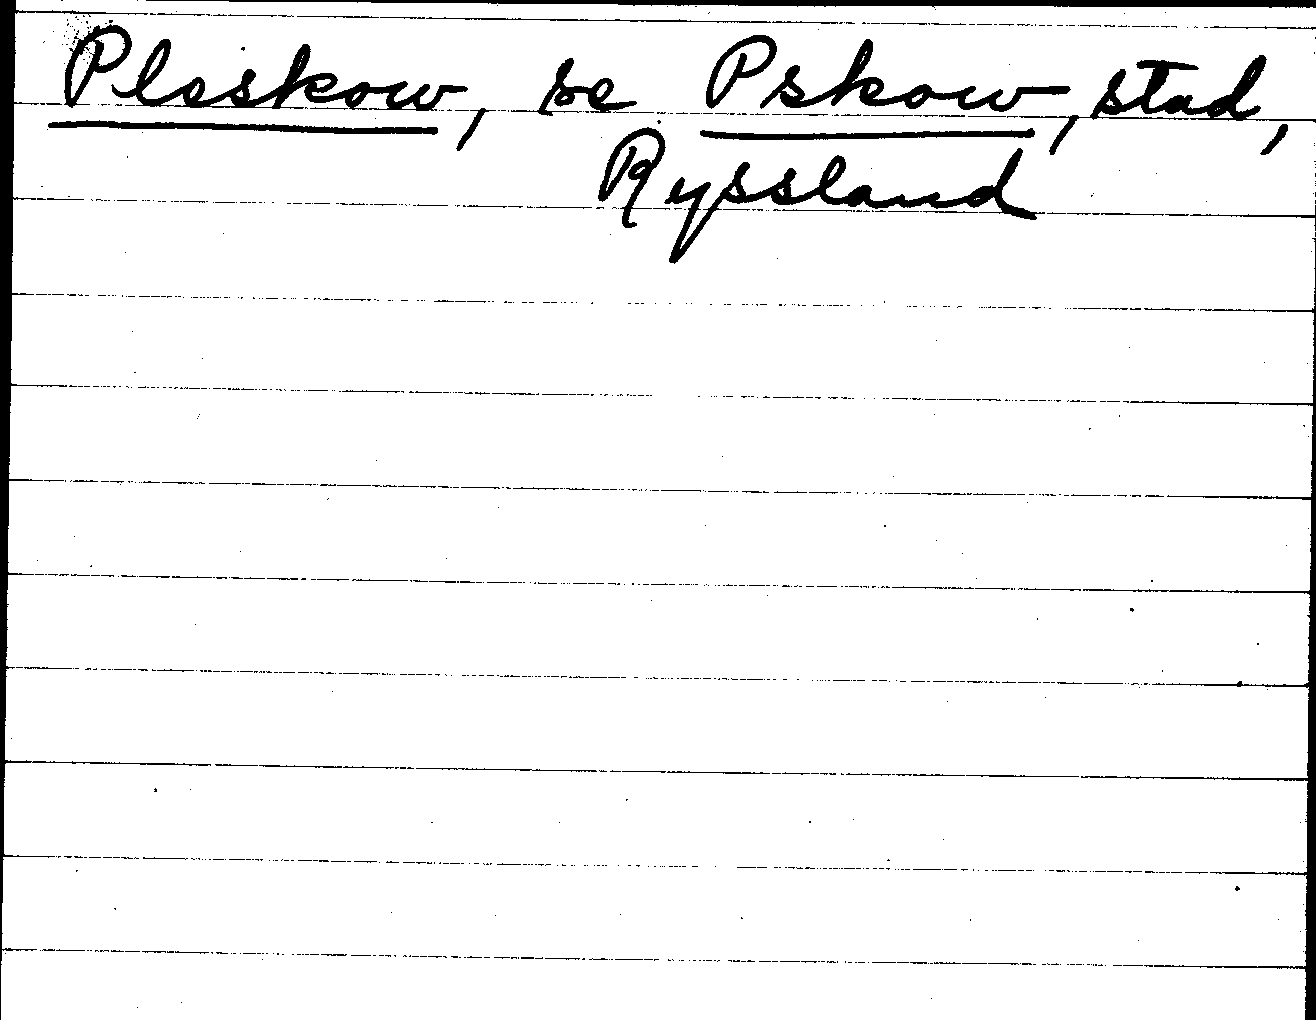 Pleskow, se Pskow, stad,
Ryssland